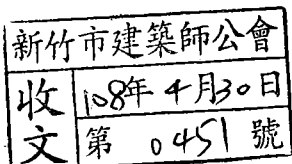 新竹市建築師公會
收文
108年4月30日
第 0451 號